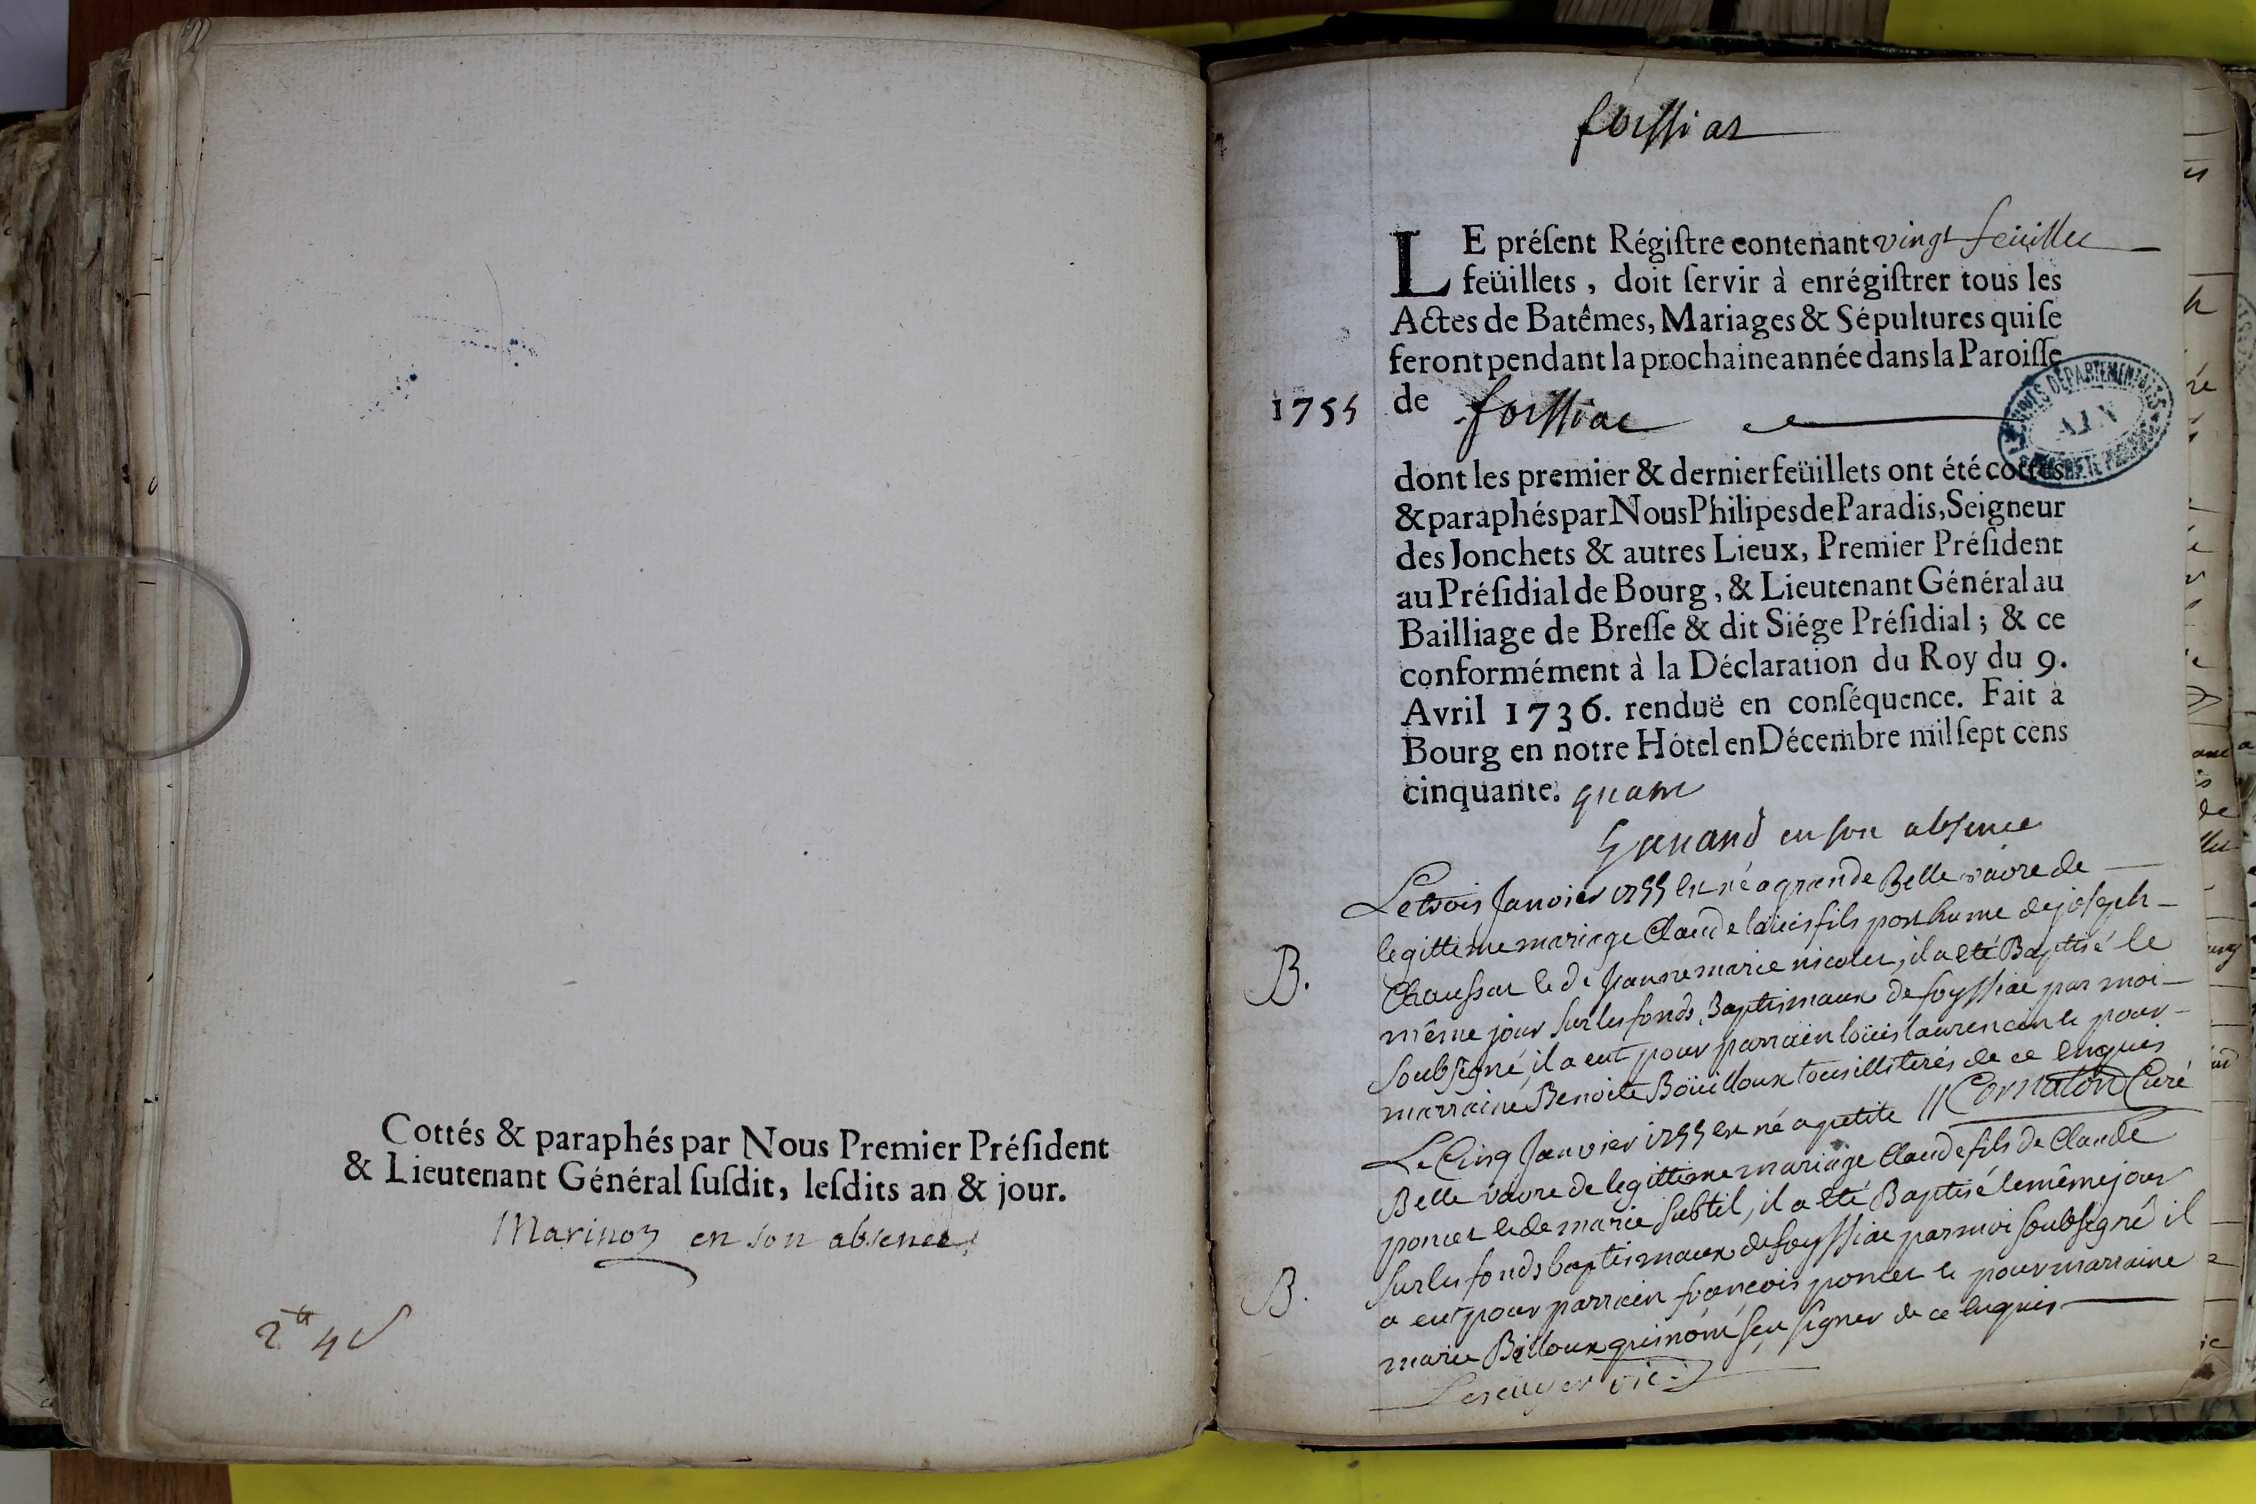 Cottés & paraphés par Nous Premier Président
& Lieutenant Général susdit, lesdits an & jour.
en son absence
foissiat
LE présent Régistre contenant vingt feuillet
feüillets, doit servir à enrégistrer tous les
Actes de Batêmes, Mariages & Sépultures qui se
feront pendant la prochaine année dans la Paroisse
1755 de foissiat
ARCHIVES DEPARTEMENTALES
AIN
dont les premier & dernier feüillets ont été cottés
& paraphés par Nous Philipes de Paradis, Seigneur
des Jonchets & autres Lieux, Premier Président
au Présidial de Bourg, & Lieutenant Général au
Bailliage de Bresse & dit Siége Présidial; & ce
conformément à la Déclaration du Roy du 9.
Avril 1736. renduë en conséquence. Fait à
Bourg en notre Hôtel en Décembre mil sept cens
cinquante. quatre
en son absence
Le trois Janvier 1755 est né a grande Belle vavre de
legittime mariage Claude loüis fils posthume de joseph
B. Chaussat et de jeanne marie nicolet, il a eté Baptisé le
même jour sur les fonds Baptismaux de foyssiat par moi
soubsigné, il a eut pour parrain loüis laurencin et pour
marraine Benoite Boüilloux tous illiterés de ce enquis
Cornaton Curé
Le Cinq Janvier 1755 est né a petite
Belle vavre de legittime mariage Claude fils de Claude
poncet et de marie subtil, il a eté Baptisé le même jour
sur les fonds baptismaux de foyssiat par moi soubsigné il
B. a eut pour parrain françois poncet et pour marraine
marie Billoux qui n'ont sçu signer de ce enquis
Lescuyer vic.